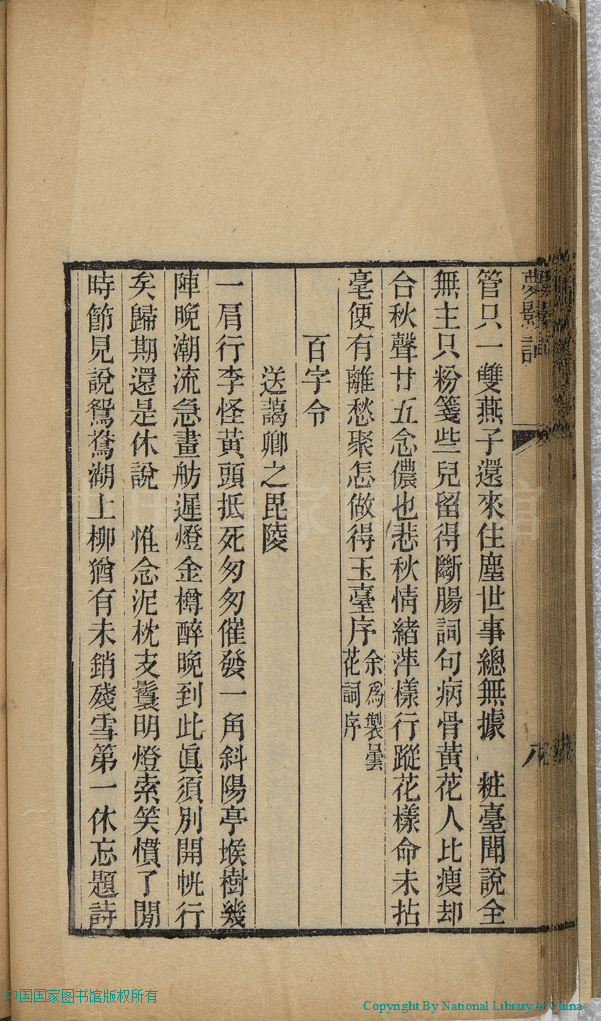 夢影詞
管只一雙燕子還來住塵世事總無據　粧臺聞說全
無主只粉箋些兒留得斷腸詞句病骨黃花人比瘦却
合秋聲廿五念儂也悲秋情緒萍樣行蹤花樣命未拈
毫便有離愁聚怎做得玉臺序余爲製曇花詞序
百字令
送藹卿之毘陵
一肩行李怪黃頭抵死匆匆催發一角斜陽亭堠樹幾
陣晚潮流急畫舫遲燈金樽醉晚到此眞須別開帆行
矣歸期還是休說　惟念泥枕支鬟明燈索笑慣了閒
時節見說鴛鴦湖上柳猶有未銷殘雪第一休忘題詩
八
中国国家图书馆版权所有
Copyright By National Library of China